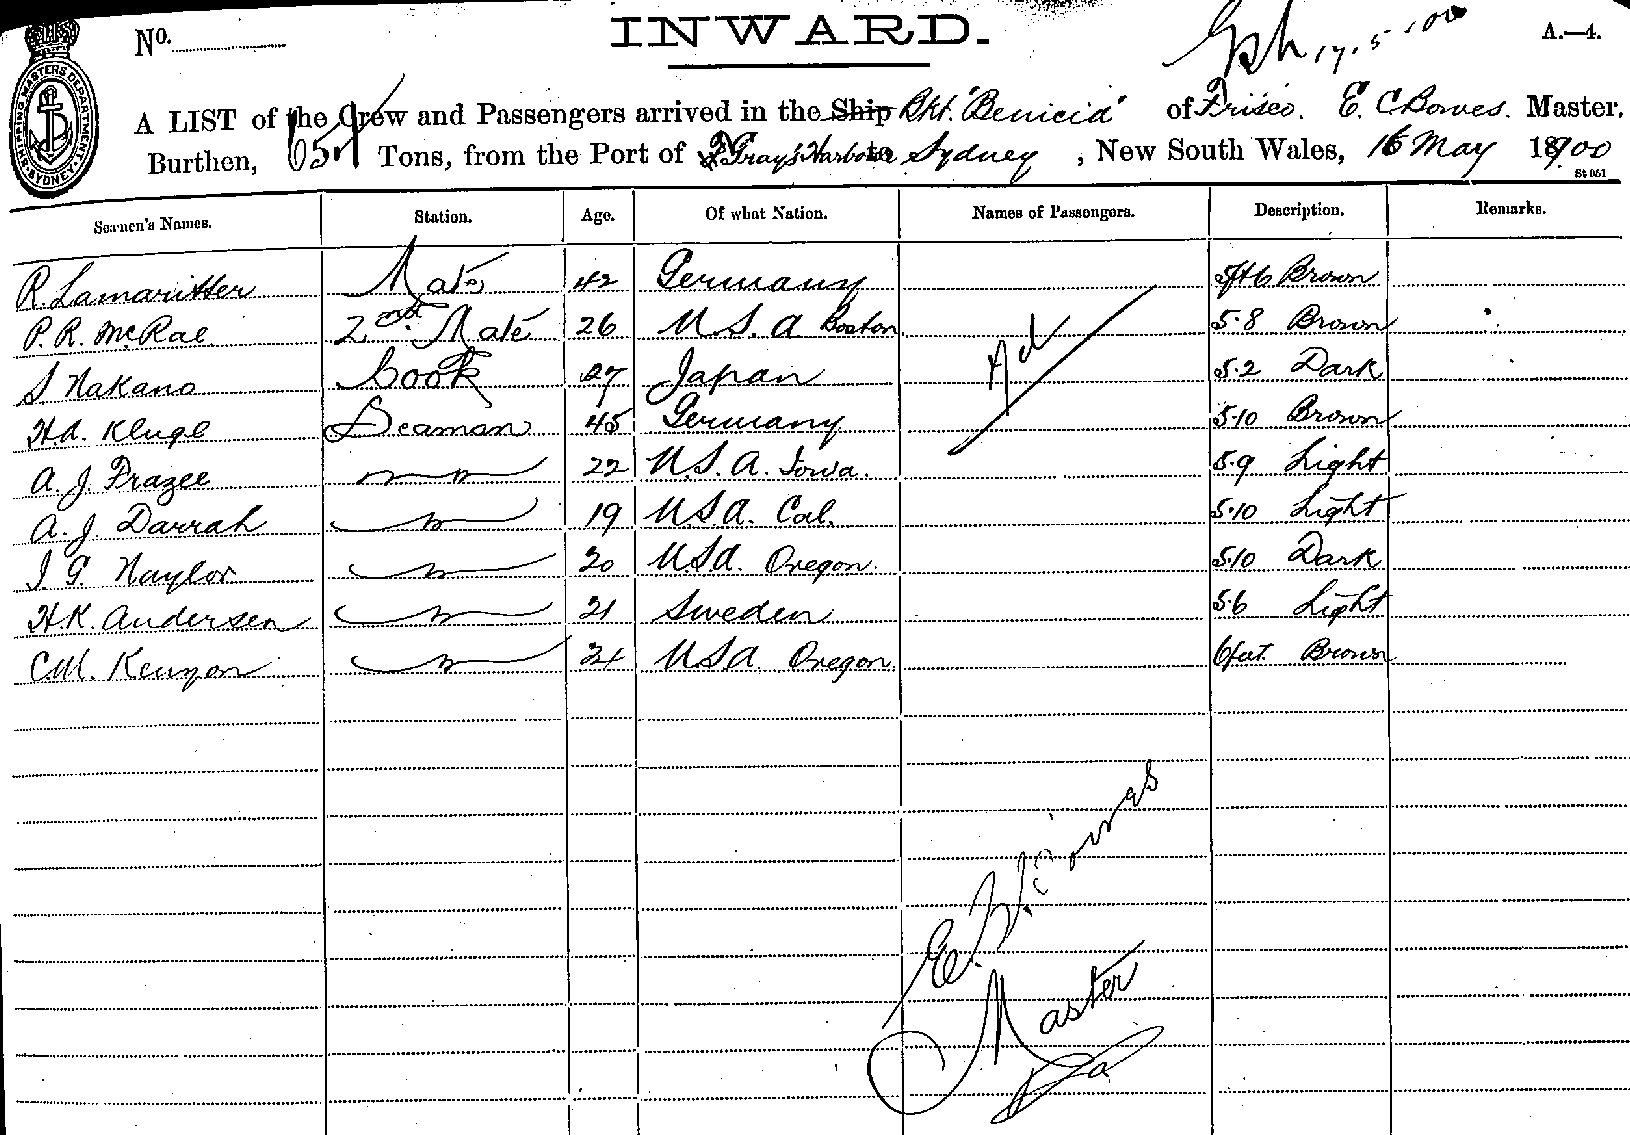 No.
INWARD.
17.5.00
A.—4.
SHIPPING MASTERS DEPARTMENT. SYDNEY.
A LIST of the Crew and Passengers arrived in the Ship Bkt. "Benicia" of Frisco. E. C Bowes. Master,
Burthen, 651 Tons, from the Port of Grays Harbour to Sydney, New South Wales, 16 May 1900
St 051
Seamen's Names. Station. Age. Of what Nation. Names of Passengers. Description. Remarks.
R. Lamaritter Mate 42 Germany 5ft 6 Brown
P. R. McRae 2nd Mate 26 U. S. A Boston 5.8 Brown
S Nakano Cook 27 Japan 5.2 Dark
H A. Kluge Seaman 45 Germany 5.10 Brown
A. J. Frazee 22 U. S. A. Iowa. 5.9 Light
A. J Darrah 19 U.S.A. Cal. 5.10 Light
I. G. Naylor 20 U S A. Oregon. 5.10 Dark
H K. Andersen 21 Sweden 5.6 Light
C M. Kenyon 21 U S A Oregon 6 feet Brown
Master